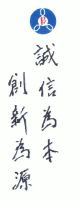 誠信為本
創新為源